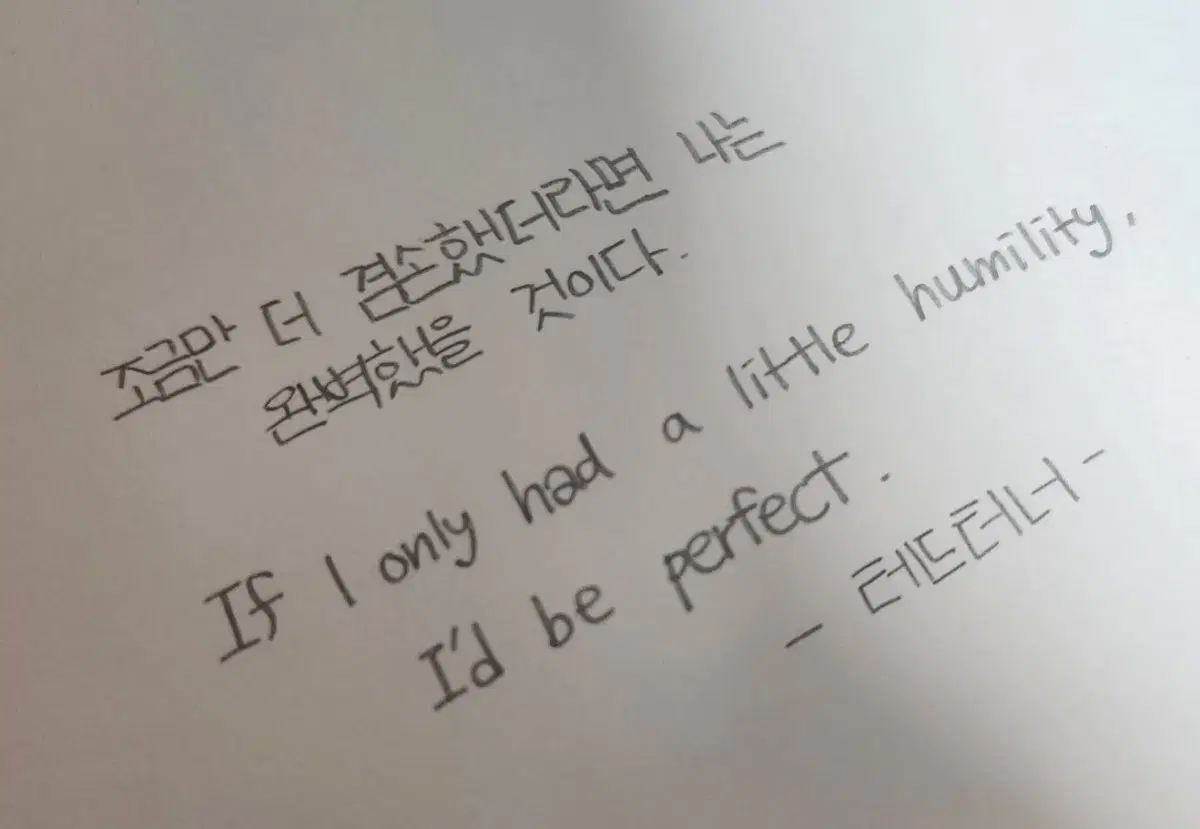 조금만 더 겸손했더라면 나는
완벽했을 것이다.
If I only had a little humility,
I'd be perfect.
- 테드터너 -